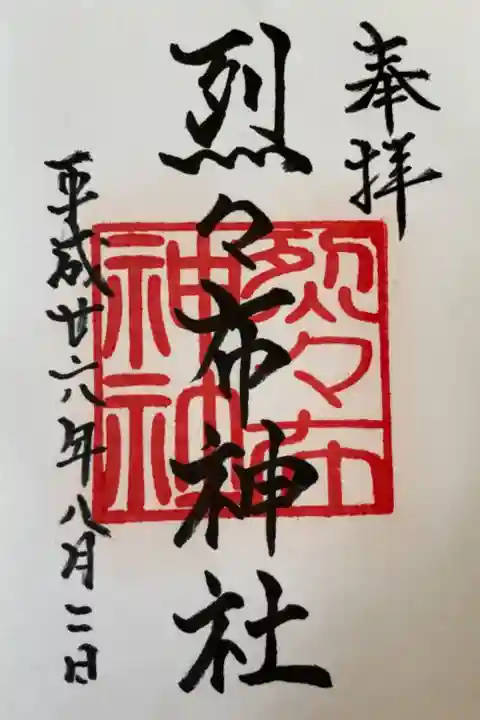 奉拝
烈々布神社
平成廿六年八月二日
烈々布
神社